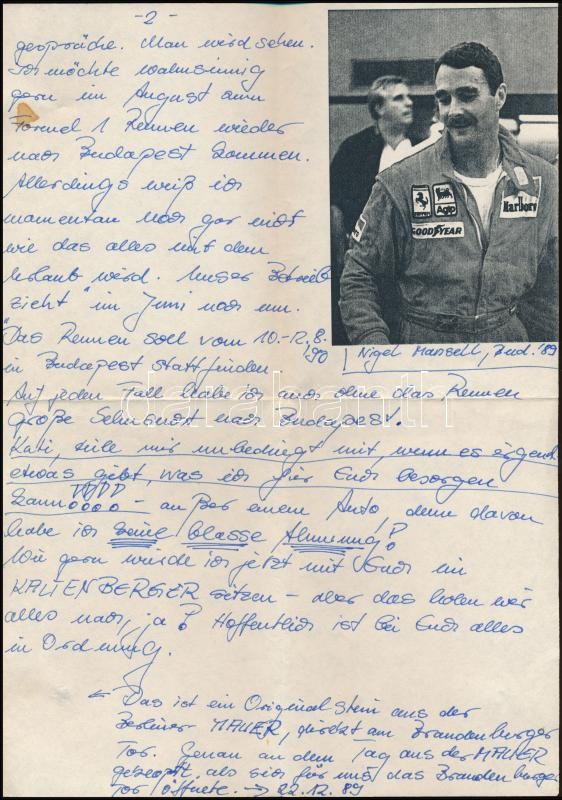 - 2 -
gespräche. Man wird sehen.
Ich möchte wahnsinnig
gern im August zum
Formel 1 Rennen wieder
nach Budapest kommen.
Allerdings weiß ich
momentan noch gar nicht
wie das alles mit dem
Urlaub wird. Unser Betrieb
zieht im Juni noch um.
Das Rennen soll vom 10.-12.8.
'90
in Budapest stattfinden
Auf jeden Fall habe ich auch ohne das Rennen
große Sehnsucht nach Budapest.
Kati, teile mir unbedingt mit, wenn es irgend
etwas gibt, was ich für Euch besorgen
kann!!!! - außer einem Auto, denn davon
habe ich keine blasse Ahnung!
Wie gern würde ich jetzt mit Euch im
KALTENBERGER sitzen - aber das holen wir
alles nach, ja? Hoffentlich ist bei Euch alles
in Ordnung.
← Das ist ein Originalstein aus der
Berliner MAUER, direkt am Brandenburger
Tor. Genau an dem Tag aus der MAUER
gekloppt, als sich für uns das Brandenburger
Tor öffnete. → 22.12.89
Nigel Mansell, Bud. '89
Agip
Marlboro
GOODYEAR
darabanth